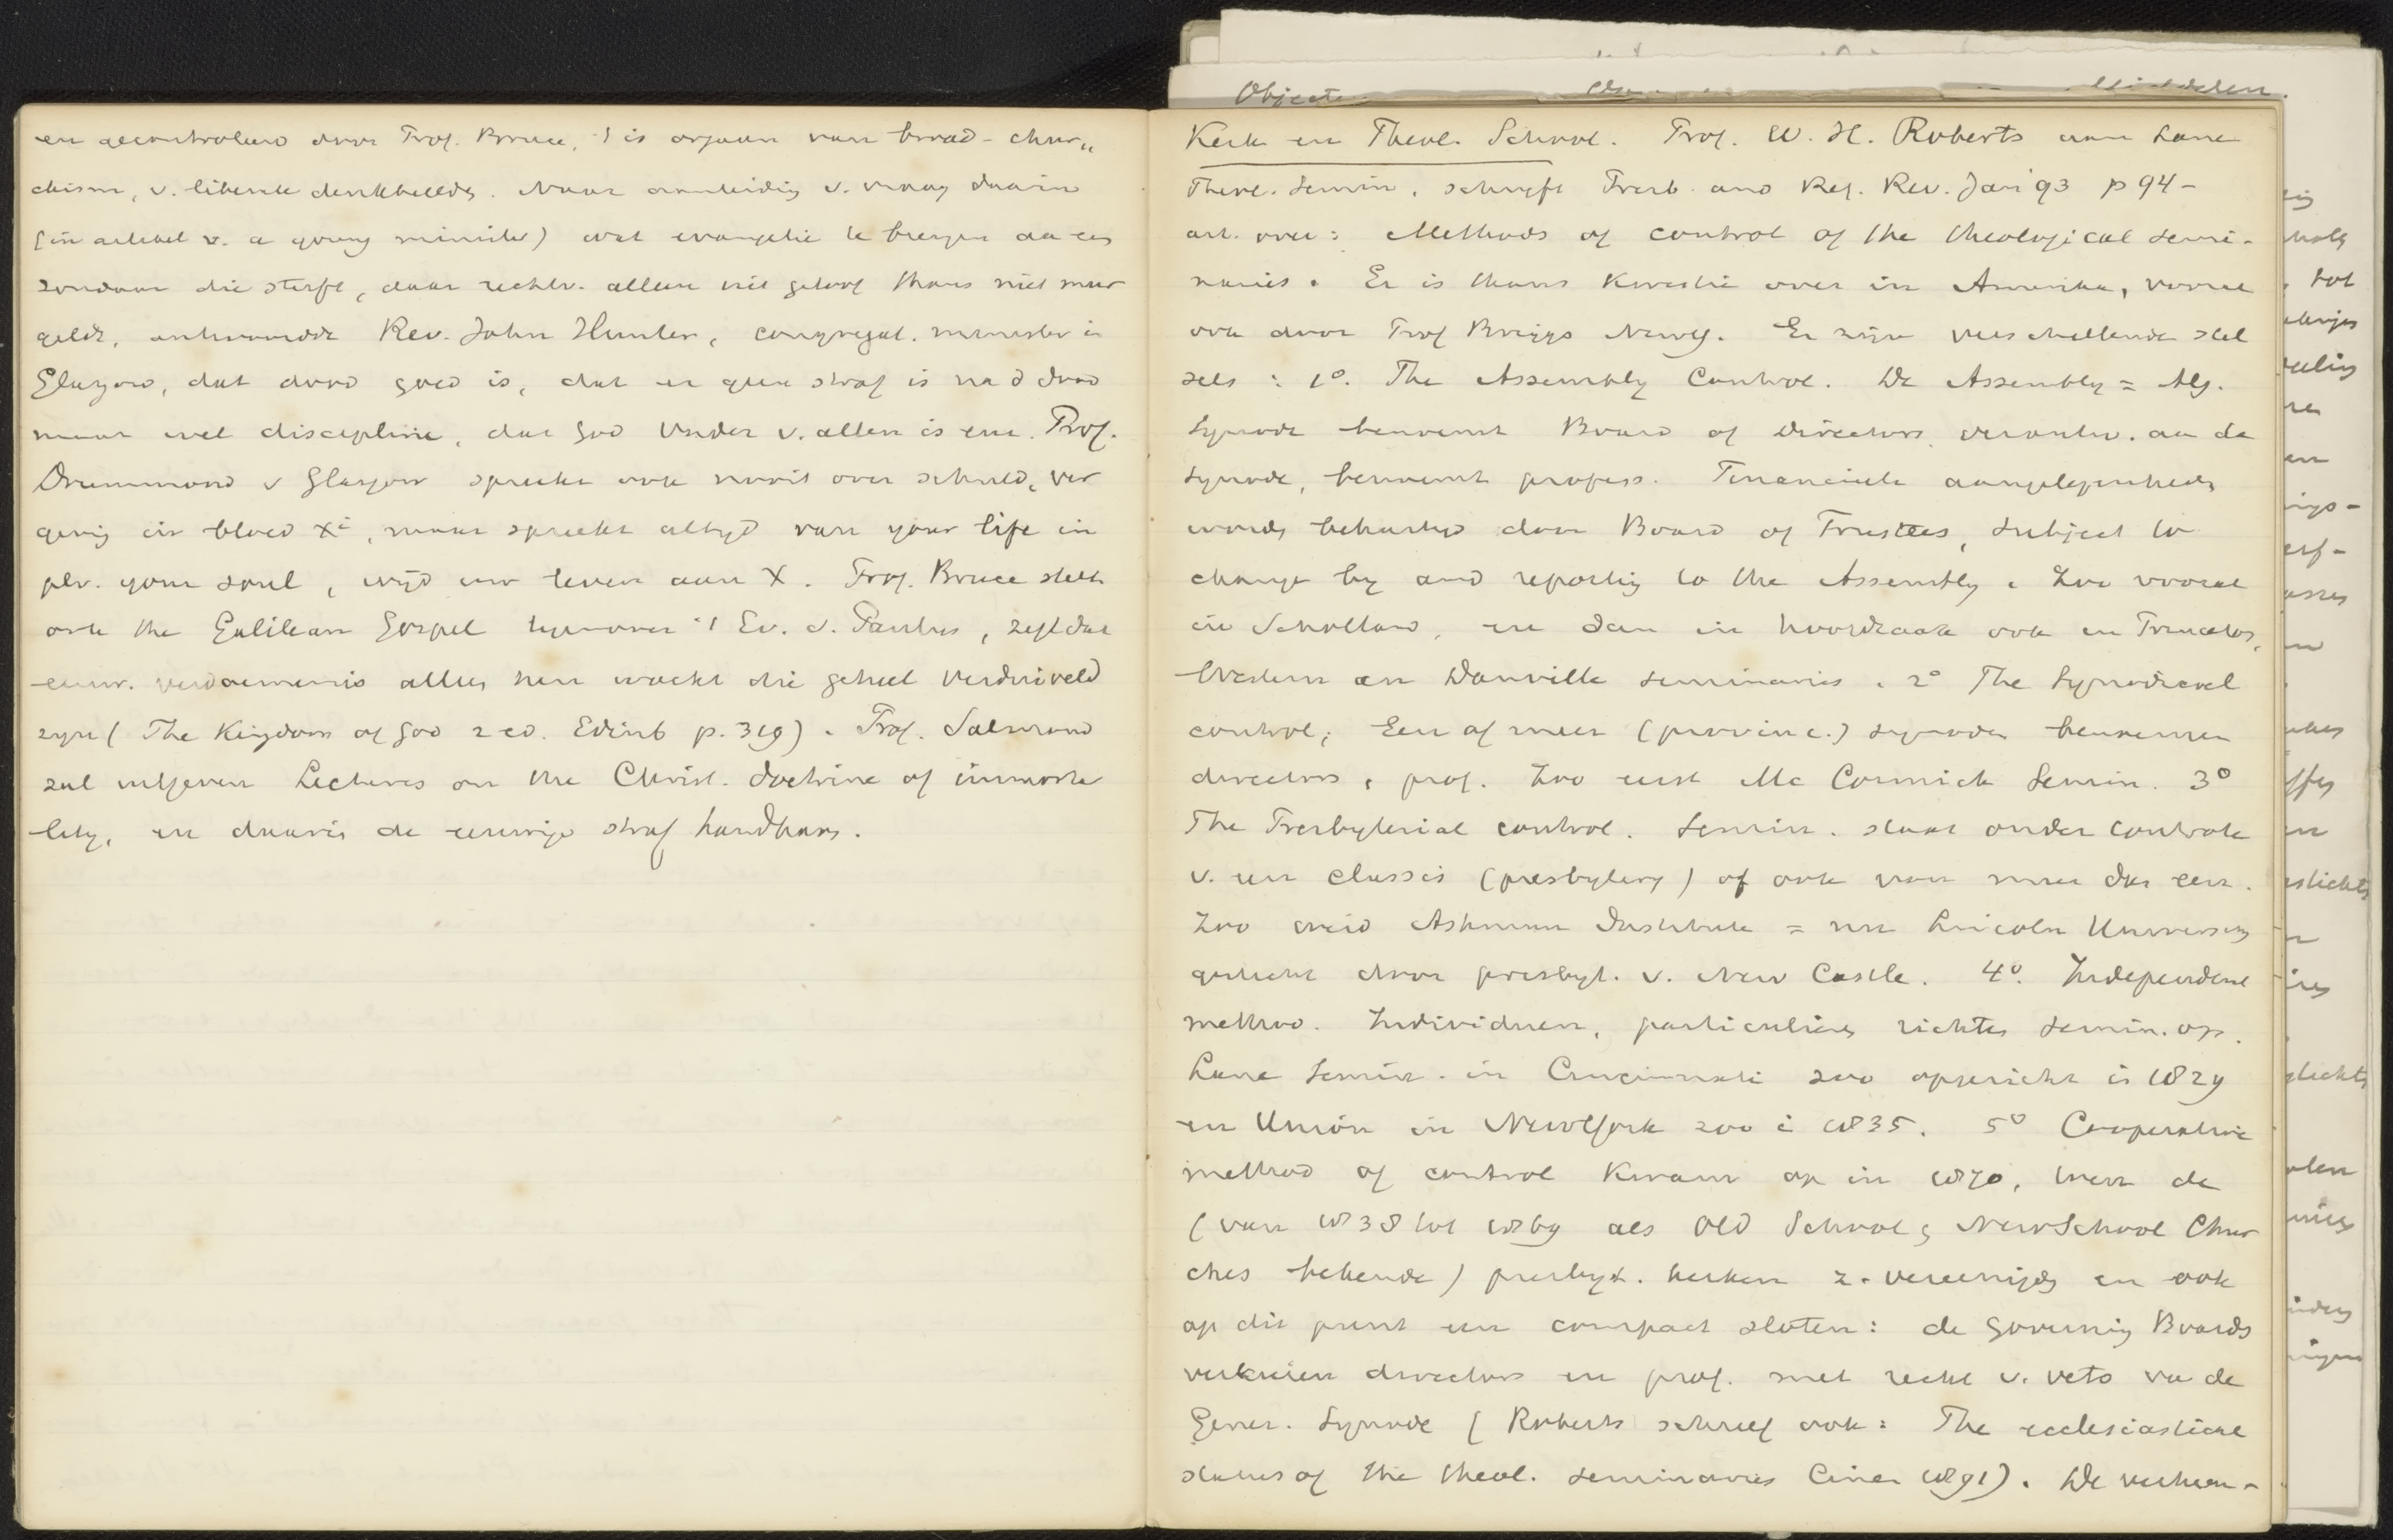 en gecontroleerd door Prof. Bruce, 't is orgaan van broad-chur„
chism, v. liberale denkbeelden. Naar aanleiding v. vraag daarin
(in artikel v. a young minister) wat evangelie te brengen aan een
zondaar die sterft, daar rechtv. alleen uit geloof thans niet meer
geldt, antwoordde Rev. John Hunter, congregat. minister in
Glasgow, dat dood goed is, dat er geen straf is na d dood
maar wel discipline, dat God Vader v. allen is enz. Prof.
Drummond v Glasgow spreekt ook nooit over schuld, ver
geving in bloed Xi, maar spreekt altijd van your life in
plv. your soul, wijd uw leven aan X. Prof. Bruce stelt
ook the Galilean Gospel tegenover 't Ev. v. Paulus, zegt dat
eeuw. verdoemenis alleen hen wacht die geheel verduiveld
zijn (The Kingdom of God 2 ed. Edinb p. 319). Prof. Salmond
zal uitgeven Lectures on the Christ. doctrine of immorta
lity, en daarin de eeuwige straf handhaven.
Kerk en Theol. School. Prof. W. H. Roberts van Lane
Theol. Semin. schrijft Presb. and Ref. Rev. Jan 93 p 94-
art. over: Methods of control of the theological semi-
naries. Er is thans kwestie over in Amerika, vooral
ook door Prof Briggs NewY. Er zijn verschillende stel
sels: 1°. The Assembly Control. De Assembly = Alg.
Synode benoemt Board of Directors verantw. aan de
synode, benoemt profess. Financieele aangelegenheden
worden behartigd door Board of Trustees, subject to
change by and reporting to the Assembly. Zoo vooral
in Schotland, en dan in hoofdzaak ook in Princeton,
Western en Danville seminaries. 2° The Synodical
control; Een of meer (provinc.) synoden benoemen
directors, prof. Zoo eerst Mc Cormick Semin. 3°
The Presbyterial control. Semin. staat onder controle
v. een classis (presbytery) of ook van meer dan een.
Zoo werd Ashmun Institute = nu Lincoln University
gesticht door presbyt. v. New Castle. 4°. Independent
method. Individuen, particulieren richten semin. op.
Lane Semin. in Cincinnati zoo opgericht in 1829
en Union in NewYork zoo in 1835. 5° Cooperative
method of control kwam op in 1870, toen de
(van 1838 tot 1869 als Old School & NewSchool Chur
ches bekende) presbyt. kerken z. vereenigden en ook
op dit punt een compact sloten: de Governing Boards
verkiezen directors en prof. met recht v. veto van de
Gener. Synode (Roberts schreef ook: The ecclesiastical
status of the theol. seminaries Cincin 1891). De verhou-